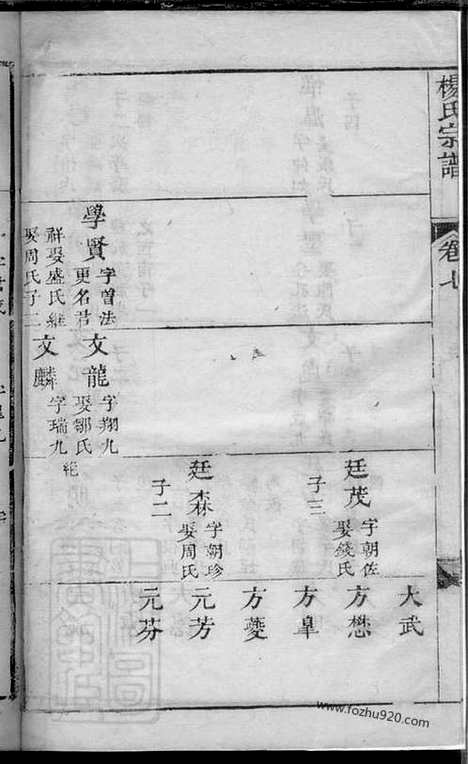 楊氏宗譜
卷七
學賢
字曾法
更名君
祥娶盛氏繼
娶周氏子二
文龍
字翔九
娶鄒氏
文麟
字瑞九
廷茂
字朝佐
娶錢氏
子三
廷森
字朝珍
娶周氏
子二
大武
方懋
方臯
方夔
元芳
元芬
www.fozhu920.com